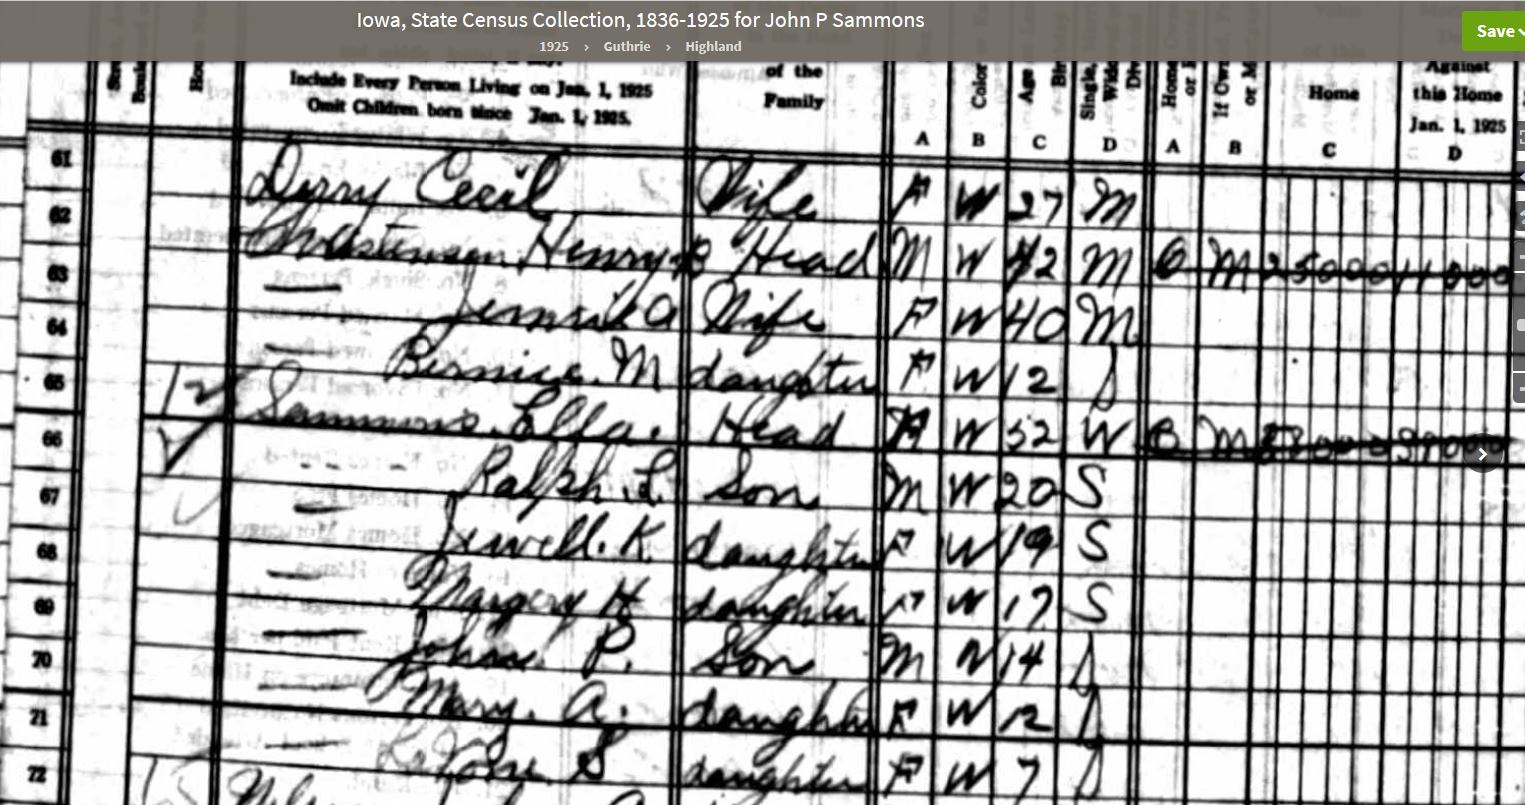 Iowa, State Census Collection, 1836-1925 for John P Sammons
1925 › Guthrie › Highland
Save
Include Every Person Living on Jan. 1, 1925
Omit Children born since Jan. 1, 1925.
of the
Family
Color
Age
Single,
Home
or
If Own,
or M
Home
Against
this Home
Jan. 1, 1925
A B C D A B C D
61 Derry Cecil Wife F W 27 M
62 Christensen Henry B Head M W 42 M O M 25000 11000
63 A Wife F W 40 M
64 Bernice M daughter F W 12 S
65 Sammons Ella. Head F W 52 W O M
66 Ralph L. Son M W 20 S
67 Jewell. K. daughter F W 19 S
68 Margery H daughter F W 17 S
69 John P. Son M W 14 S
70 Mary. A. daughter F W 12 S
71 S daughter F W 7 S
72